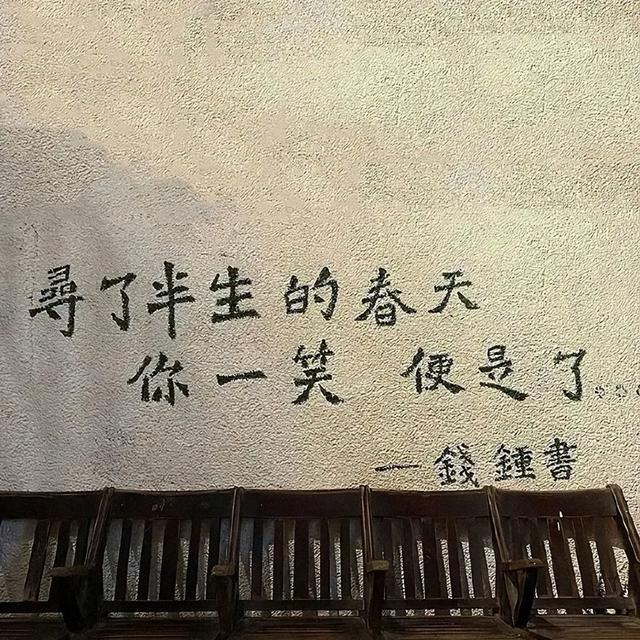 尋了半生的春天
你一笑 便是了。。。
—錢鍾書